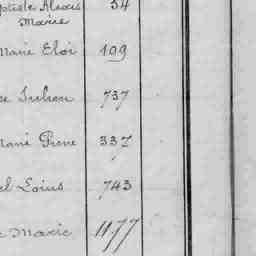 ptiste Alexis 54
Marie
Marie Eloi 109
Julien 737
Pierre 337
el Louis 743
Marie 1177